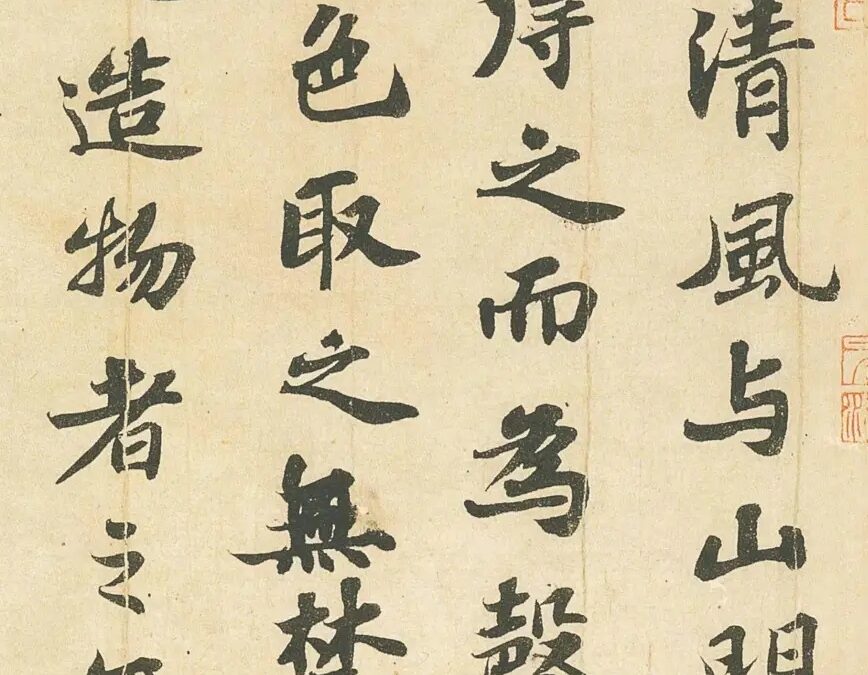 清風与山
得之而為聲
色取之無
造物者之